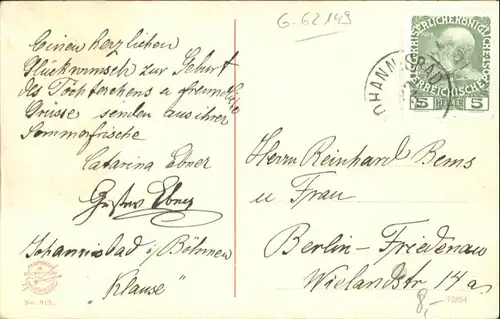 G-62149
Einen herzlichen
Glückwunsch zur Geburt
des Töchterchens u freundliche
Grüsse senden aus ihrer
Sommerfrische
Catarina Ebner
Gustav Ebner
Johannisbad i/ Böhmen
"Klause"
No. 915.
1908
KAISERLICHE KÖNIGLICHE
ÖSTERREICHISCHE
5 HELLER 5
JOHANNISBAD
Herrn Reinhard Bems
u Frau
Berlin-Friedenau
Wielandstr 14 a.
8,-
72654